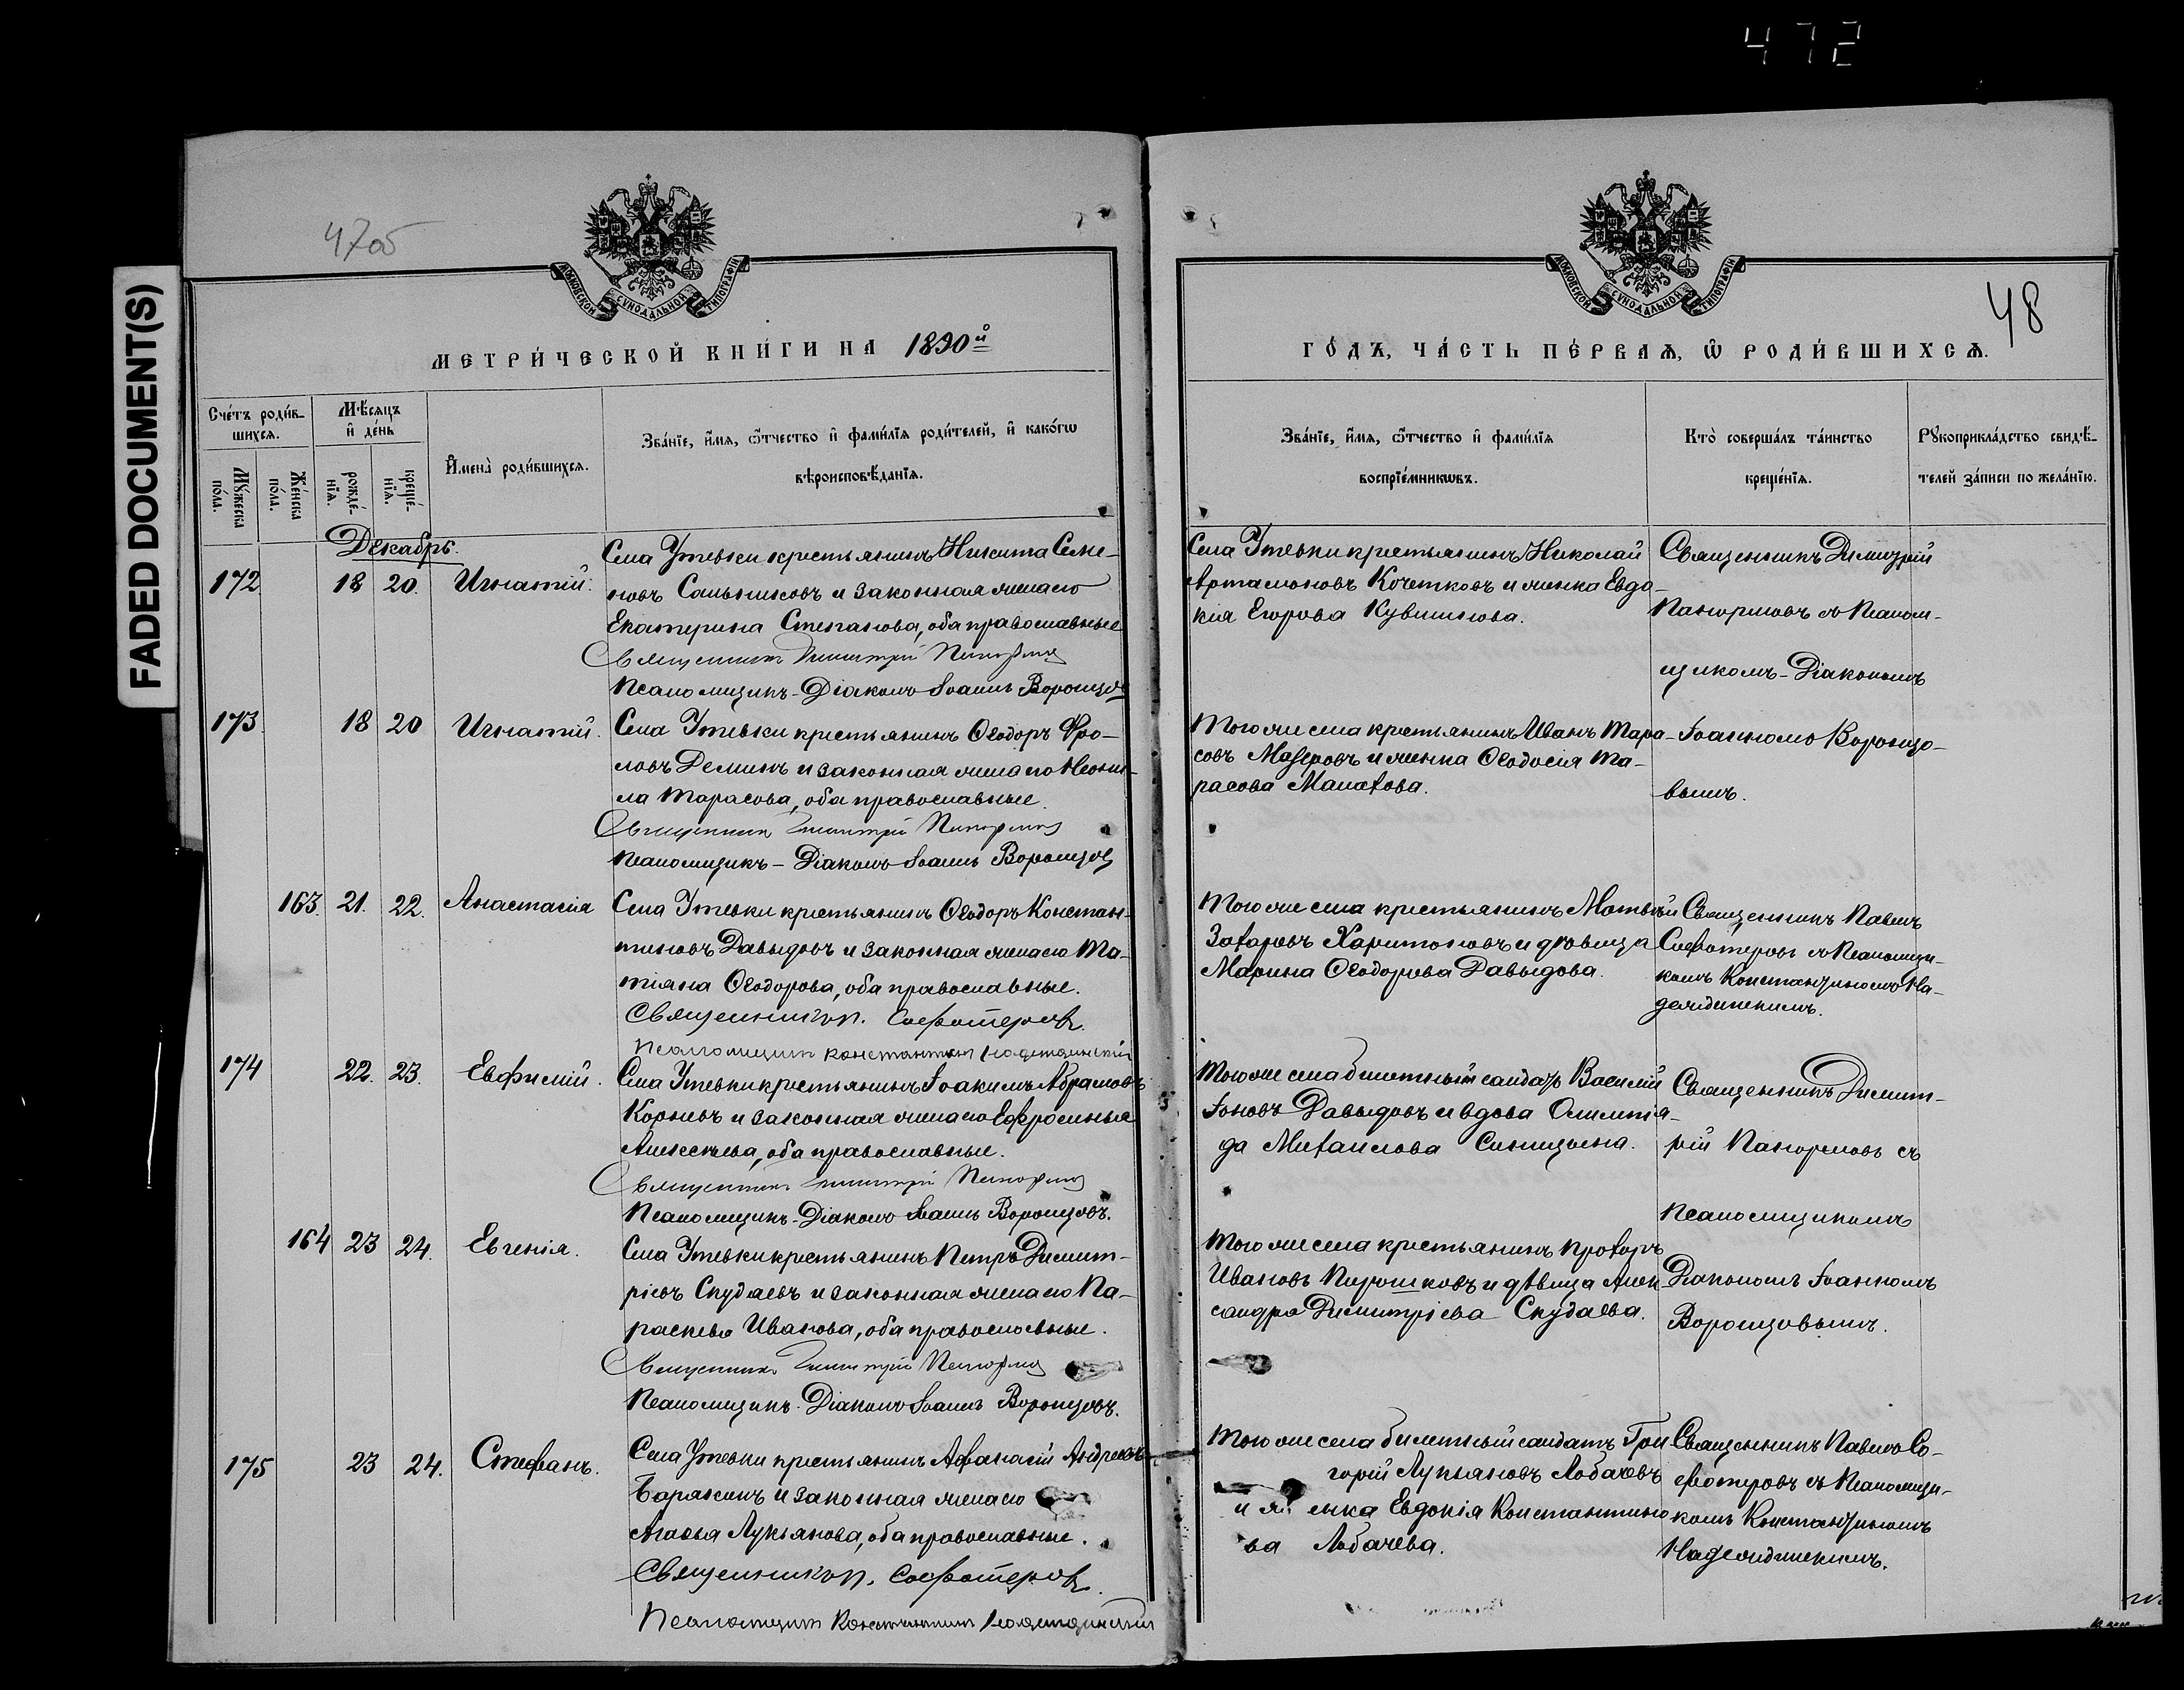 472
FADED DOCUMENT(S)
47об
48
МОСКОВСКОЙ СѴНОДАЛЬНОЙ ТИПОГРАФІИ
МОСКОВСКОЙ СѴНОДАЛЬНОЙ ТИПОГРАФІИ
МЕТРИ́ЧЕСКОЙ КНИ́ГИ НА 1890й
ГО́ДЪ, ЧА́СТЬ ПЕ́РВАѦ, Ѡ РОДИ́ВШИХСѦ.
Сче́тъ роди́в-
шихсѧ.
Мꙋ́жеска по́ла.
Же́нска по́ла.
Мѣ́сѧцъ
и҆ де́нь
рожде́-
нїѧ.
креще́-
нїѧ.
И҆мена̀ роди́вшихсѧ.
Зва́нїе, и҆́мѧ, ѻ҆́тчество и҆ фами́лїѧ роди́телей, и҆ како́гѡ
вѣроисповѣ́данїѧ.
Зва́нїе, и҆́мѧ, ѻ҆́тчество и҆ фами́лїѧ
воспрїе́мникѡвъ.
Кто̀ соверша́лъ та́инство
креще́нїѧ.
Рꙋкоприкла́дство свидѣ́-
телей за́писи по жела́нїю.
Декабрь.
172 18 20. Игнатій.
Села Утевки крестьянинъ Никита Семе-
новъ Сальниковъ и законная жена его
Екатерина Степанова, оба православные
Священникъ Димитрій Панормов
Псаломщикъ-Діаконъ Іоаннъ Воронцов
Села Утевки крестьянинъ Николай
Артамоновъ Кочетковъ и женка Евдо-
кія Егорова Кувшинова.
Священникъ Димитрій
Панормовъ съ Псалом-
щикомъ-Діакономъ
Іоанномъ Воронцо-
вымъ.
173 18 20 Игнатій.
Села Утевки крестьянинъ Ѳеодоръ Фро-
ловъ Деминъ и законная жена его Неони-
ла Тарасова, оба православные.
Священникъ Димитрій Панормов
Псаломщикъ-Діаконъ Іоаннъ Воронцов
Того же села крестьянинъ Иванъ Тара-
совъ Мазеровъ и женка Ѳеодосія Та-
расова Малахова.
163. 21. 22. Анастасія
Села Утевки крестьянинъ Ѳеодоръ Констан-
тиновъ Давыдовъ и законная жена его Та-
тіана Ѳеодорова, оба православные.
Священникъ П. Сосфотеров.
Псаломщикъ Константин Надеждинскій
Того же села крестьянинъ Матвѣй
Захаровъ Харитоновъ и дѣвица
Марина Ѳеодорова Давыдова.
Священникъ Павелъ
Сосфотеровъ съ Псаломщи-
комъ Константиномъ На-
деждинскимъ.
174 22. 23. Евфимій.
Села Утевки крестьянинъ Іоакимъ Абрамовъ
Корневъ и законная жена его Ефросинья
Алексѣева, оба православные.
Священникъ Димитрій Панормов
Псаломщикъ-Діаконъ Іоаннъ Воронцовъ.
Того же села билетный солдатъ Василій
Іоновъ Давыдовъ и вдова Олимпіа-
да Михаилова Синицына.
Священникъ Димит-
рій Панормовъ съ
Псаломщикомъ
Діакономъ Іоанномъ
Воронцовымъ.
164 23 24. Евгенія.
Села Утевки крестьянинъ Петръ Димит-
ріевъ Скудаевъ и законная жена его Па-
раскева Иванова, оба православные.
Священникъ Димитрій Панормов
Псаломщикъ-Діаконъ Іоаннъ Воронцовъ.
Того же села крестьянинъ Прохоръ
Ивановъ Пирошковъ и дѣвица Алек-
сандра Димитріева Скудаева.
175 23 24. Стефанъ.
Села Утевки крестьянинъ Афанасій Андреевъ
Баракинъ и законная жена его
Агафья Лукьянова, оба православные.
Священникъ П. Сосфотеров.
Псаломщикъ Константинъ Надеждинскій
Того же села билетный солдатъ Гри
горій Лукьяновъ Лобачевъ
и женка Евдокія Константино
ва Лобачева.
Священникъ Павелъ Со-
сфотеровъ съ Псаломщи-
комъ Константиномъ
Надеждинскимъ.